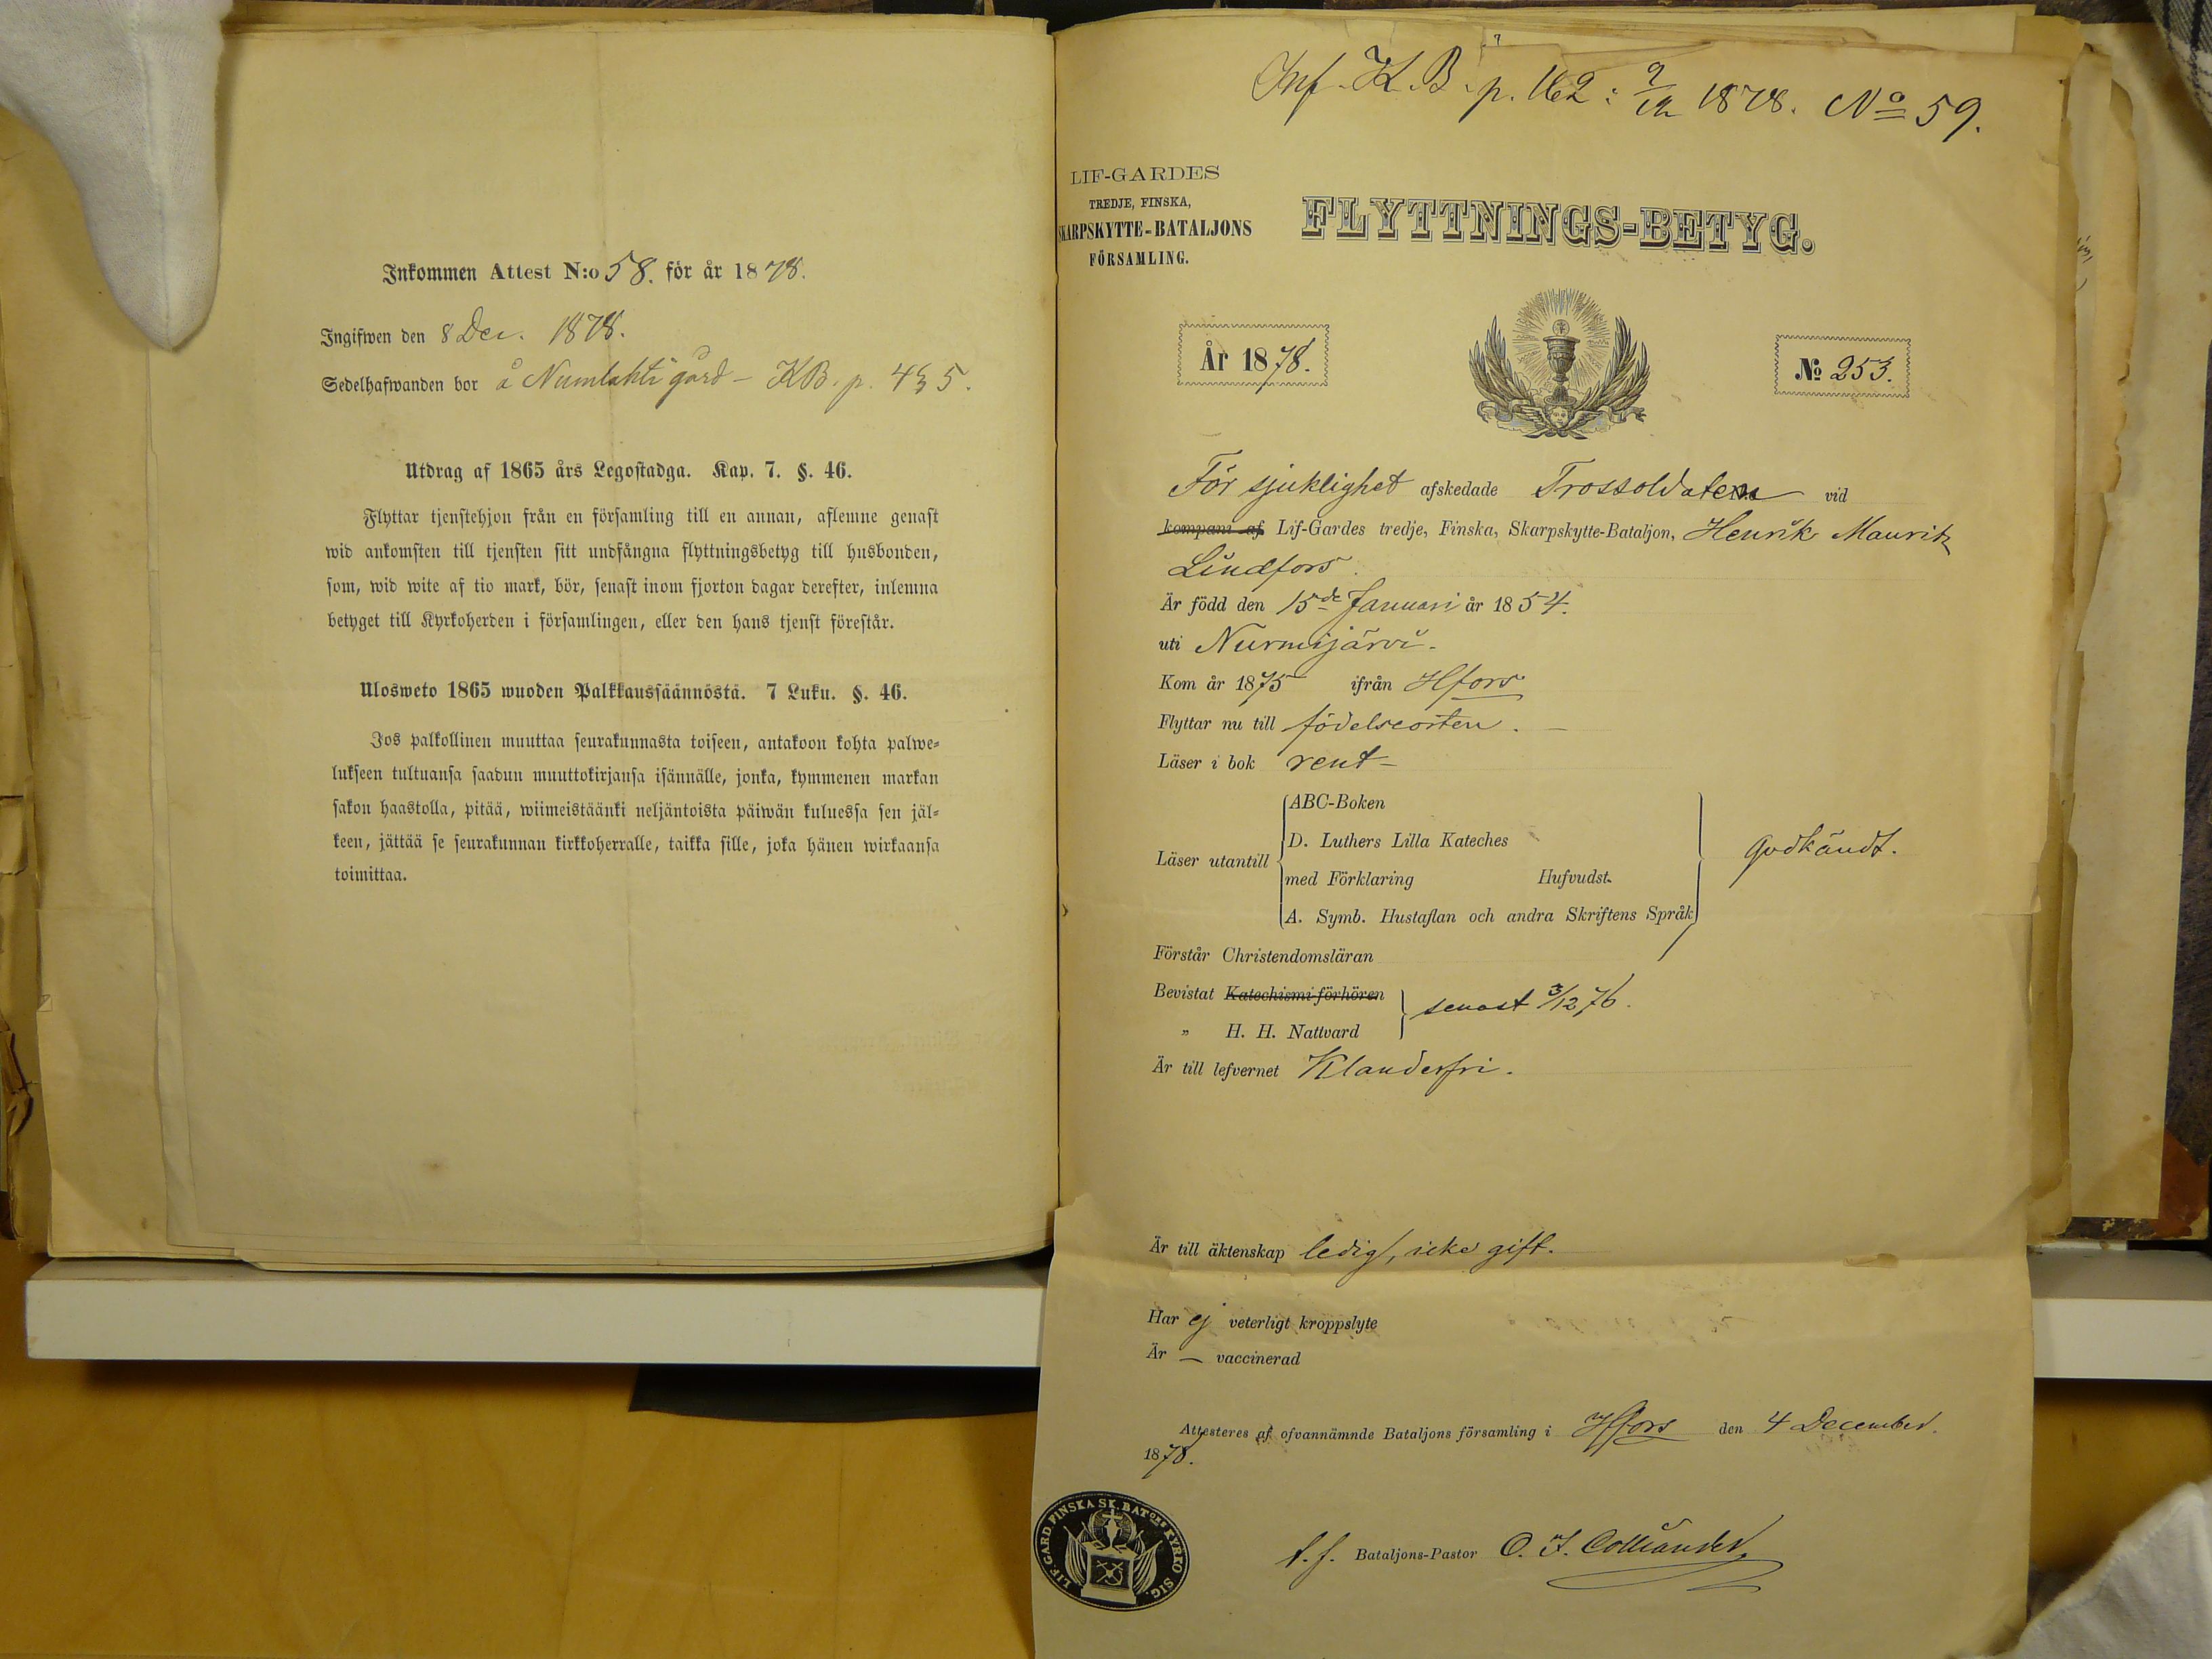 Inkommen Attest N:o 58. för år 1878.
Ingifwen den 8 Dec. 1878.
Sedelhafwanden bor å Numlahti gård – KB. p. 435.
Utdrag af 1865 års Legostadga. Kap. 7. §. 46.
Flyttar tjenstehjon från en församling till en annan, aflemne genast
wid ankomsten till tjensten sitt undfångna flyttningsbetyg till husbonden,
som, wid wite af tio mark, bör, senast inom fjorton dagar derefter, inlemna
betyget till Kyrkoherden i församlingen, eller den hans tjenst förestår.
Ulosweto 1865 wuoden Palkkaussäännöstä. 7 Luku. §. 46.
Jos palkollinen muuttaa seurakunnasta toiseen, antakoon kohta palwe-
lukseen tultuansa saadun muuttokirjansa isännälle, jonka, kymmenen markan
sakon haastolla, pitää, wiimeistäänki neljäntoista päiwän kuluessa sen jäl-
keen, jättää se seurakunnan kirkkoherralle, taikka sille, joka hänen wirkaansa
toimittaa.
Inf. K.B. p. 162: 9/12 1878. No 59.
LIF-GARDES
TREDJE, FINSKA,
SKARPSKYTTE-BATALJONS
FÖRSAMLING.
FLYTTNINGS-BETYG.
År 1878.
№ 253.
För sjuklighet afskedade Trossoldaten vid
kompani af Lif-Gardes tredje, Finska, Skarpskytte-Bataljon, Henrik Mauritz
Lindfors.
Är född den 15de Januari år 1854.
uti Nurmijärvi.
Kom år 1875 ifrån Hfors
Flyttar nu till födelseorten. –
Läser i bok rent –
ABC-Boken
D. Luthers Lilla Kateches
Läser utantill med Förklaring Hufvudst. godkändt.
A. Symb. Hustaflan och andra Skriftens Språk
Förstår Christendomsläran
Bevistat Katechismi-förhören
senast 3/12 76.
„ H. H. Nattvard
Är till lefvernet Klanderfri.
Är till äktenskap ledig, icke gift.
Har ej veterligt kroppslyte
Är – vaccinerad
Attesteres af ofvannämnde Bataljons församling i Hfors den 4 December
1878.
LIF.GARD FINSKA SK.BATons KYRKO SIG.
t.f. Bataljons-Pastor O. I. Colliander